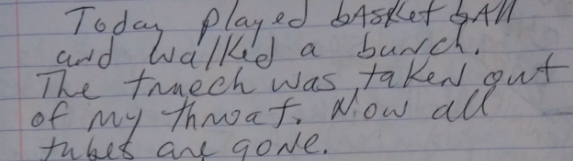 Today played bAsket bAll
and walked a bunch.
The trach was taken out
of my throat. Now all
tubes are gone.